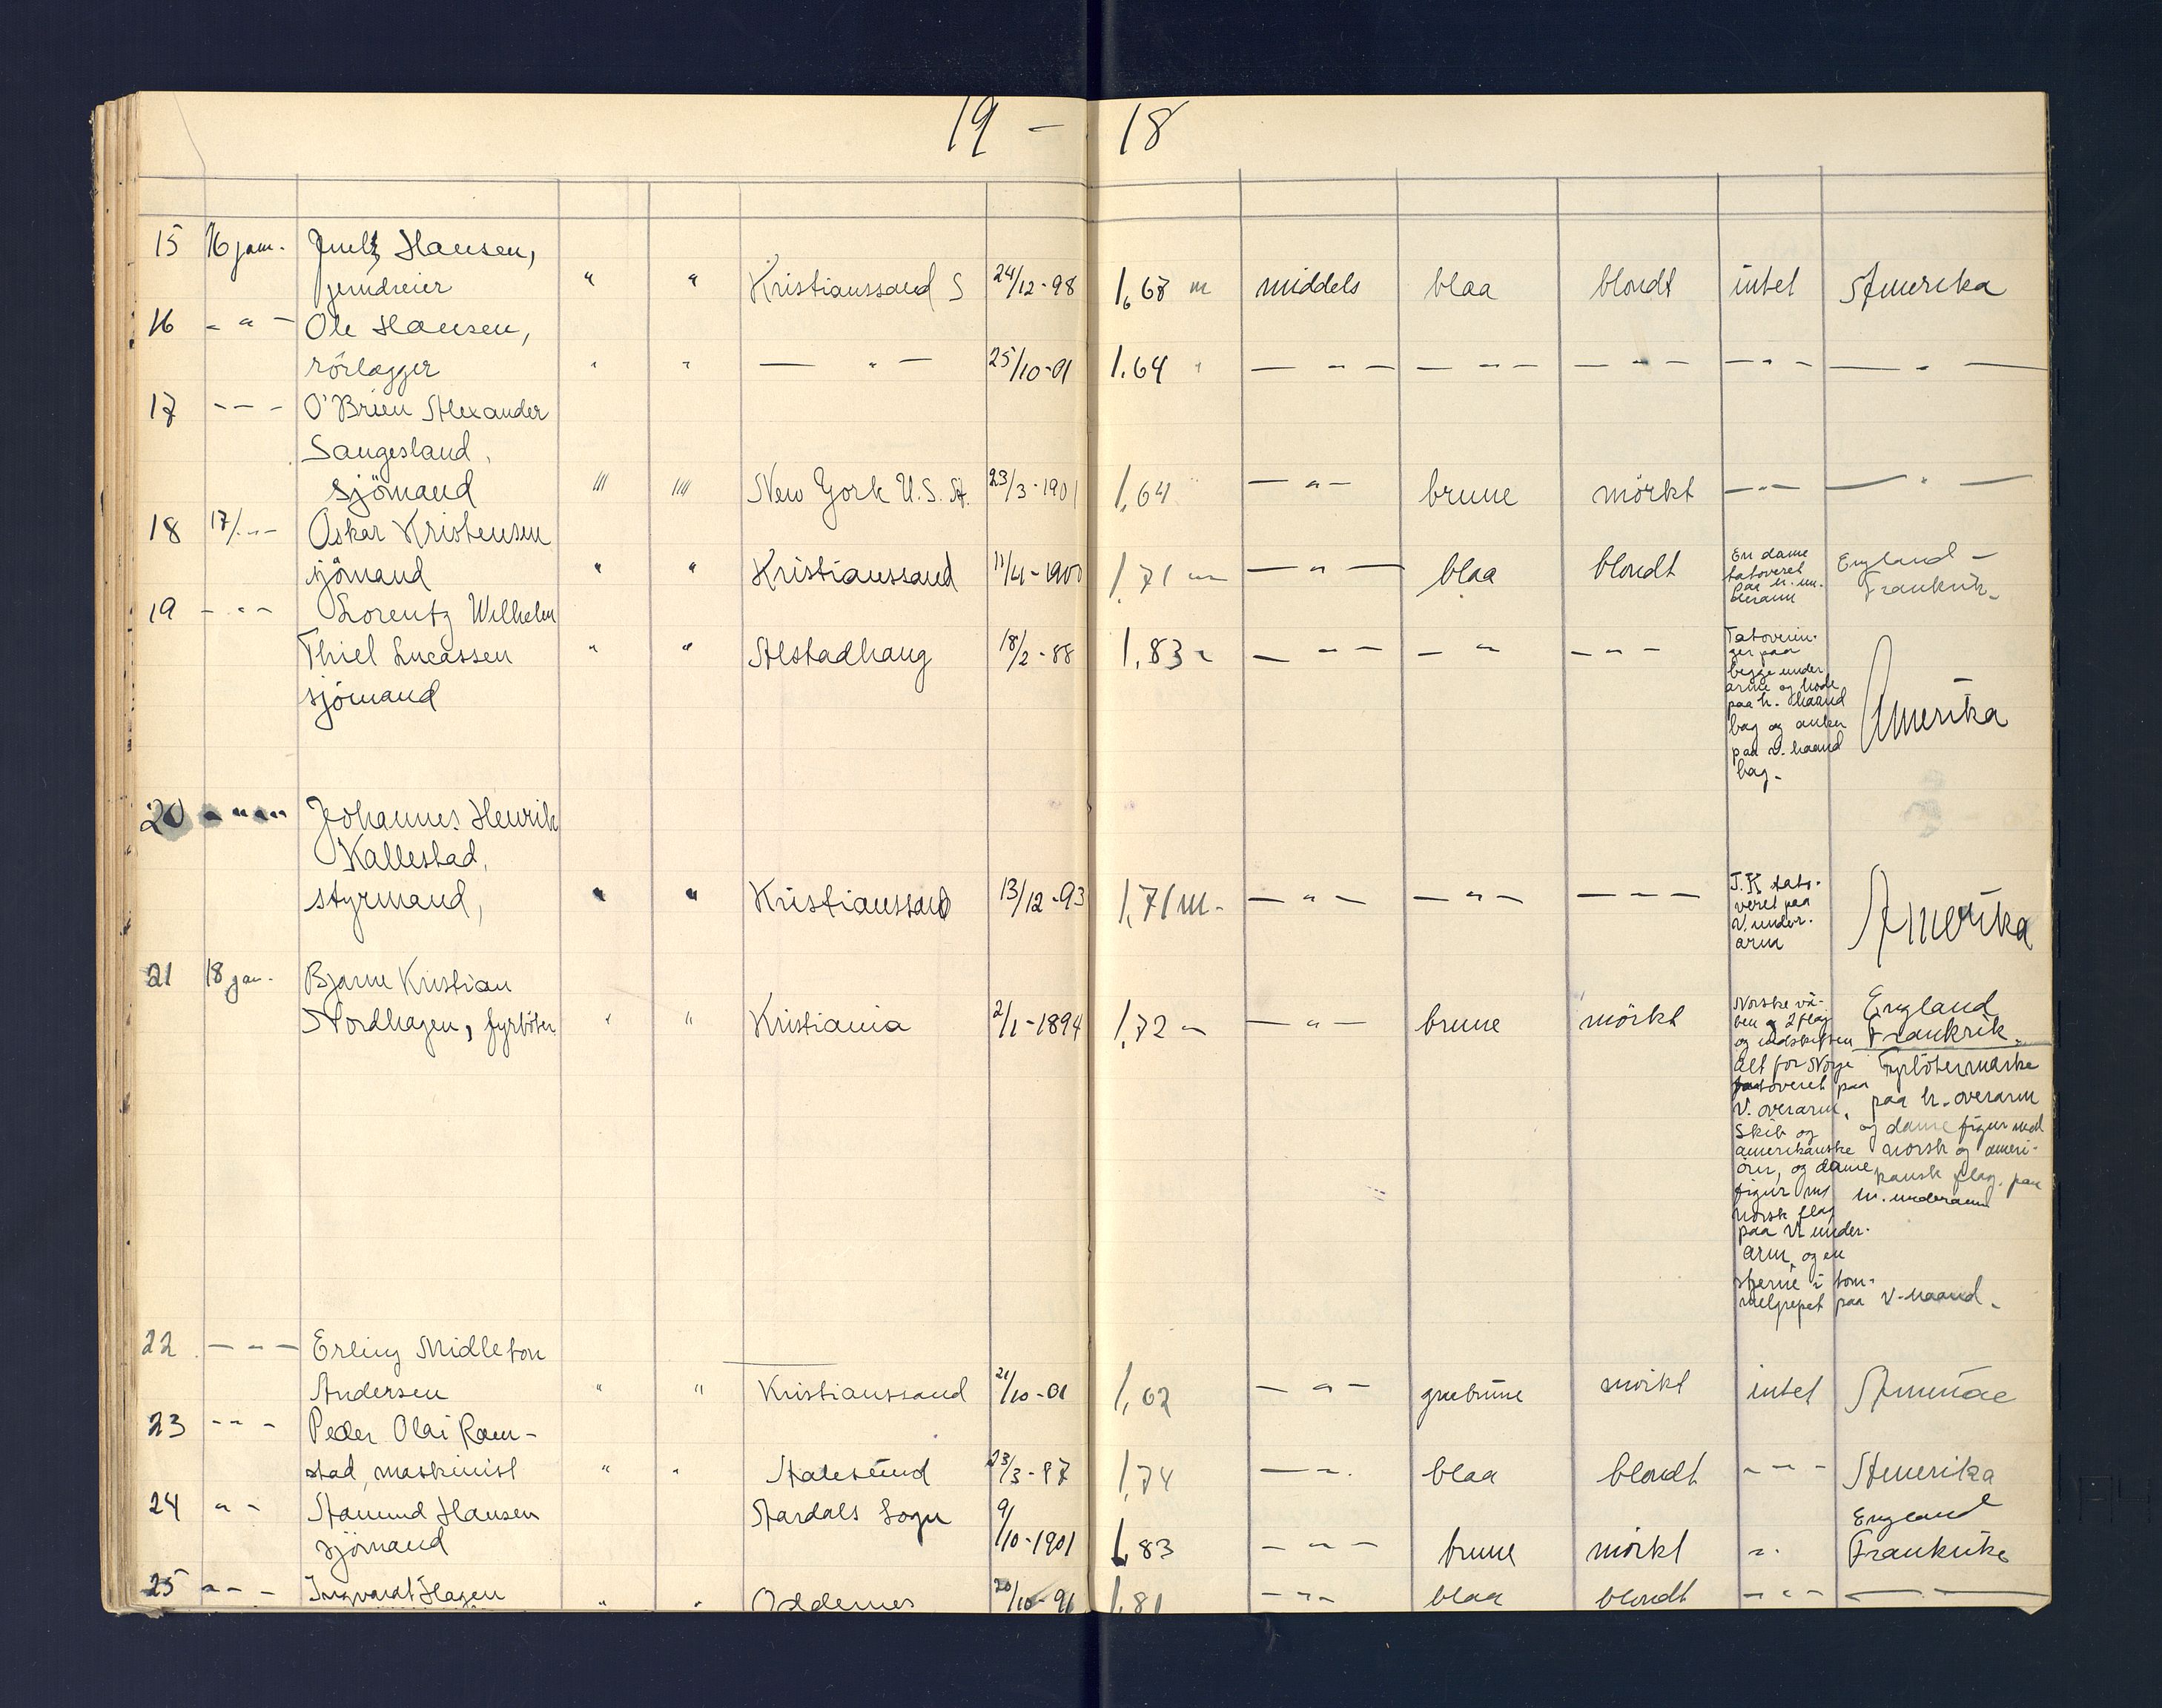 19 - 18
15 16 jan. Hansen,
jerndreier " " Kristianssand S 24/12-98 1,68 m middels blaa blondt intet Amerika
16 - " - Ole Hansen,
rörlægger " " — " — 25/10-01 1.64 " — " — — " — — " — — " — — " —
17 - - - O'Brien Alexander
Saugesland,
sjömand " " New York U.S.A. 23/3-1901 1,64 — " — brune mörkt — " — — " —
18 17/. - - Oskar Kristensen
sjömand " " Kristianssand 11/4-1900 1,71 m — " — blaa blondt
En dame
tatoveret
paa h. un-
derarm
England -
Frankrik -
19 - " - Lorentz Wilhelm
Thiel Lucassen " " Alstadhaug 18/2-88 1,83 — " — — " — — " —
sjömand
Tatoverin-
ger paa
begge under
arme og hode
paa h. haand
bag og anker
paa v. haand
bag -
Amerika
20 - " - " Johannes Henrik
Kallestad,
styrmand, " " Kristianssand 13/12-93 1,71 m. — " — — " — — " —
J.K tato-
veret paa
V. under-
arm
Amerika
21 18 jan. Bjarne Kristian
Nordhagen, fyrböter " " Kristiania 2/1-1894 1,72 — " — brune mörkt
Norske vå-
ben og 2 flag
og indskriften
alt for Norge
tatoveret paa
V. overarm,
Skib og
amerikanske
örn, og dame
figur m/
norsk flag
paa V. under-
arm, og en
stjerne i tom-
melgrepet paa v. haand.
England
Frankrik.
Fyrbötermærke
paa h. overarm
og dame figur med
norsk og ameri-
kansk flag. paa
h. underarm
22 - - - Erling Midleton
Andersen " " Kristianssand 21/10-01 1,62 — " — mörkt intet
23 - " - Peder Olai Ram-
stad, maskinist " " Aalesund 23/3-87 1,74 — " . blaa blondt - " - Amerika
24 " - Amund Hansen Aardals Sogn 9/10-1901
sjömand 1,83 - " - brune mörkt " .
England
Frankrike
25 " - - Ingvardt Hagen " " Oddernes 20/10-96 1,81 - " - blaa blondt - " - — —